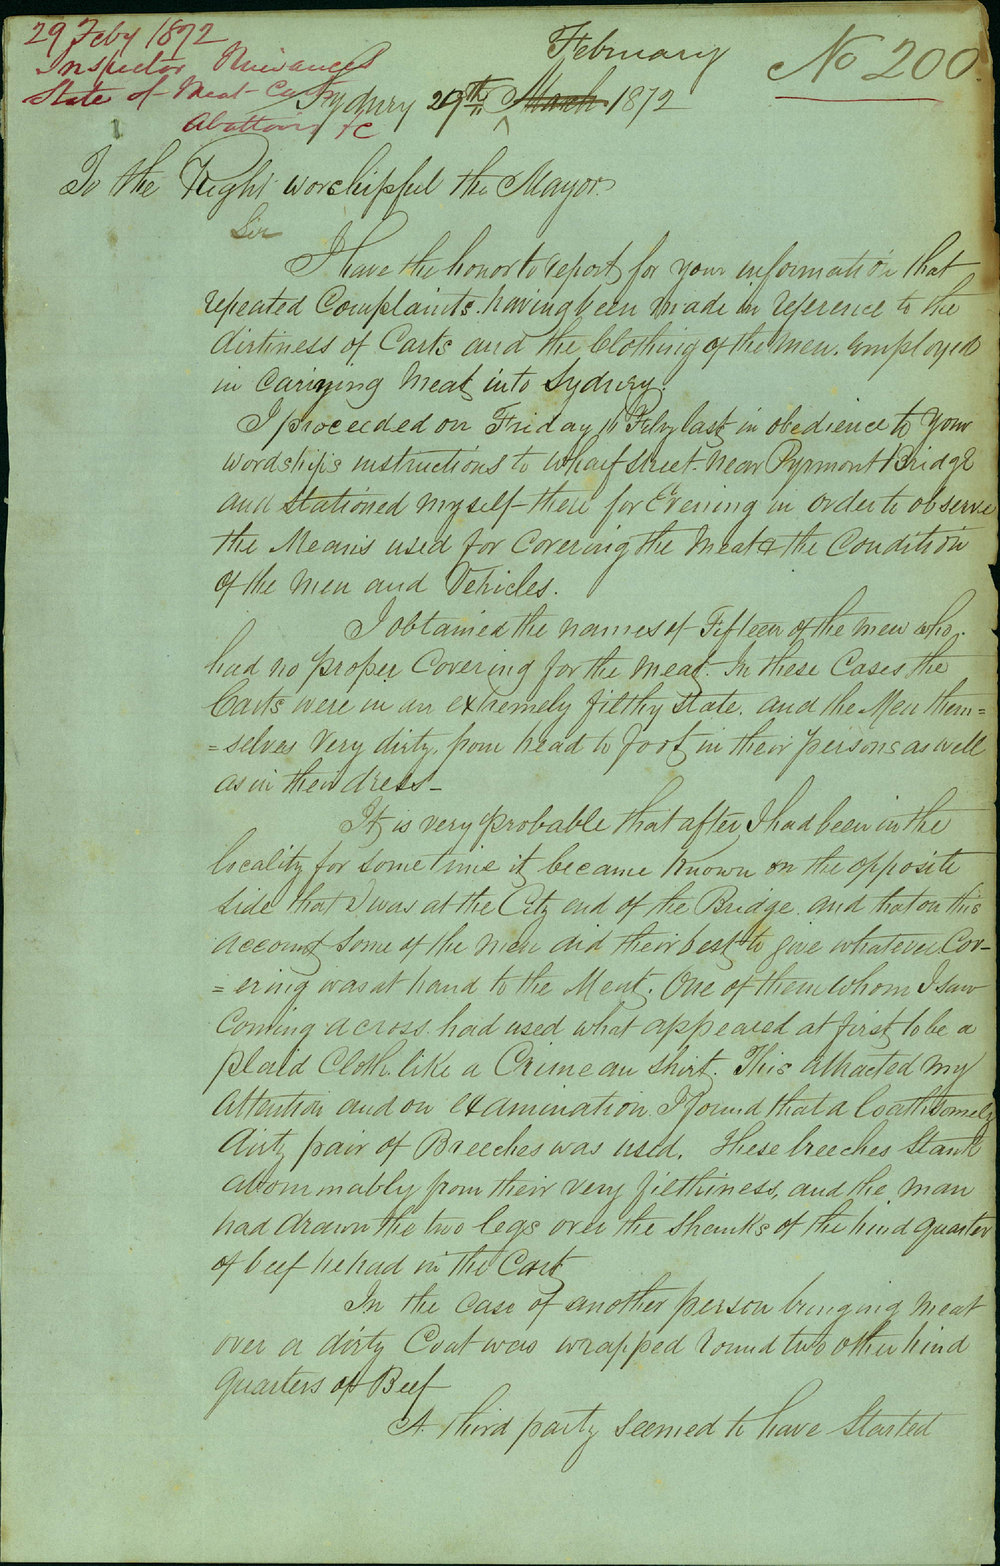 29 Feby 1872
Inspector Nuisances
State of Meat Carts
Abattoirs &c
No 200
February
Sydney 29th March 1872
To the Right Worshipful the Mayor
Sir
I have the honor to report for your information that
repeated Complaints having been made in reference to the
dirtiness of Carts and the Clothing of the Men. employed
in Carrying Meat into Sydney.
I proceeded on Friday Feby last in obedience to your
Worship's instructions to Wharf street. near Pyrmont Bridge
and Stationed myself there for Evening in order to observe
the Means used for Covering the Meat & the Condition
of the Men and Vehicles.
I obtained the names of Fifteen of the men who
had no proper Covering for the Meat. In these Cases the
Carts were in an extremely filthy state. and the Men them=
=selves Very dirty. from head to foot in their persons as well
as in their dress_
It is very probable that after I had been in the
locality for some time it became known on the opposite
side that I was at the City end of the Bridge. and that on this
account some of the men did their best to give whatever Cov-
=ering was at hand to the Meat. One of them whom I saw
Coming across. had used what appeared at first to be a
plaid Cloth. like a Crimean shirt. This attracted my
Attention and on examination I found that a loathsomely
dirty pair of Breeches was used. These breeches stank
abominably from their very filthiness, and the man
had drawn the two legs over the shanks of the hind quarter
of beef he had in the Cart
In the case of another person bringing meat
over a dirty Coat was wrapped round two other hind
quarters of Beef
A third party seemed to have started